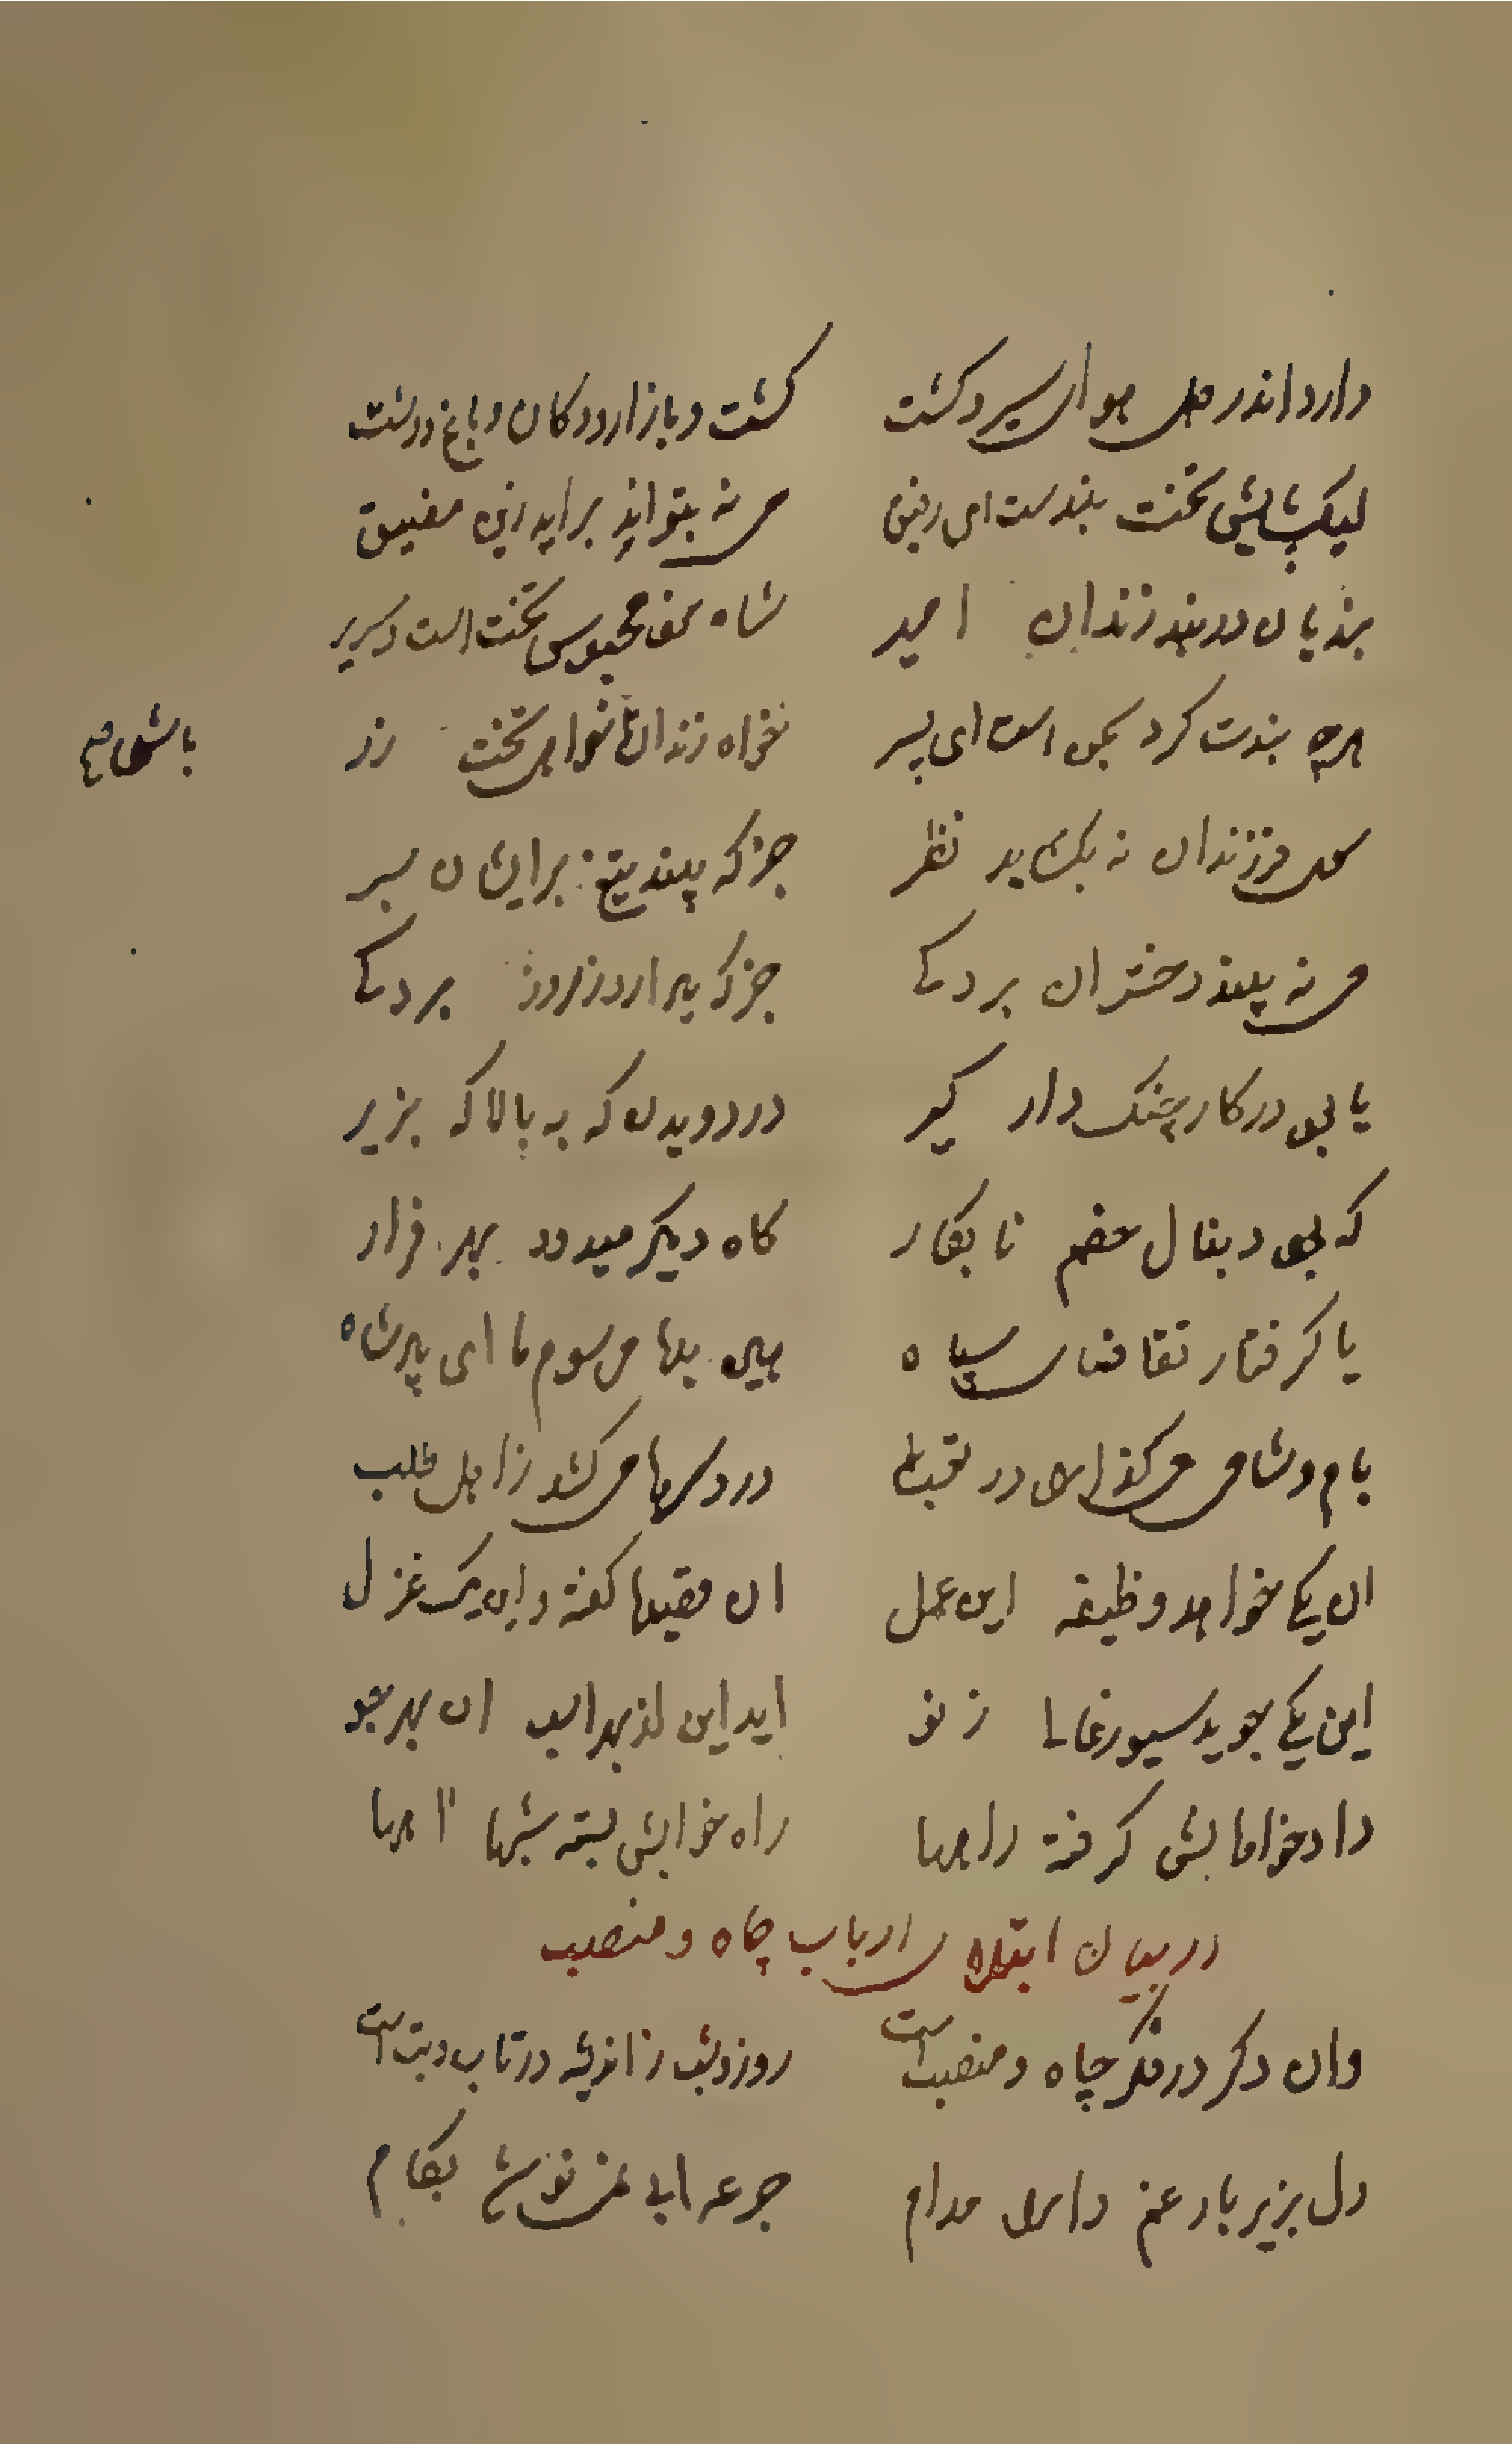 دارد اندر دل هوای سیر و کشت کشت و بازار و دکان و باغ و دشت
لیک پایش تخت بندست ای رفیق می نه بتواند براید زین مضیق
بندیان در بند زندان اسیر شاه هم محبوس تخت است و سریر
هرچه بندت کرد سجن است ای پسر خواه زندان خواه تخت زر
باشدی صح
سوی فرزندان نه بکشاید نظر جز که بیند تیغ برایشان بسر
می نه بیند دختران بر دیک جز که یراز روز بر دیک
یا بود در کار جنک دار کیر در دویدن که به بالا که بزیر
که بود دنبال خصم نابکار کاه دیکر میدود بهر فرار
یا کرفتار تقاضای سپاه هین بده مرسوم ما ای پادشاه
بام و شامی می کذارد در تعب درد سرها می کشد ز اهل طلب
ان یکی خواهد وظیفه این عمل ان قصیدها کفته و این یک غزل
این یکی جوید سیورغالی ز نو اید این از بهر اسب ان بهر جو
دادخواهانش کرفته راهها راه خوابش بسته شبها اهها
در بیان ابتلای ارباب جاه و منصب
وان دکر در فکر جاه و منصب است روز و شب ز اندیشه در تاب و تب است
دل بزیر بار غم دارد مدام جرعه ابی نمی نوشد بکام